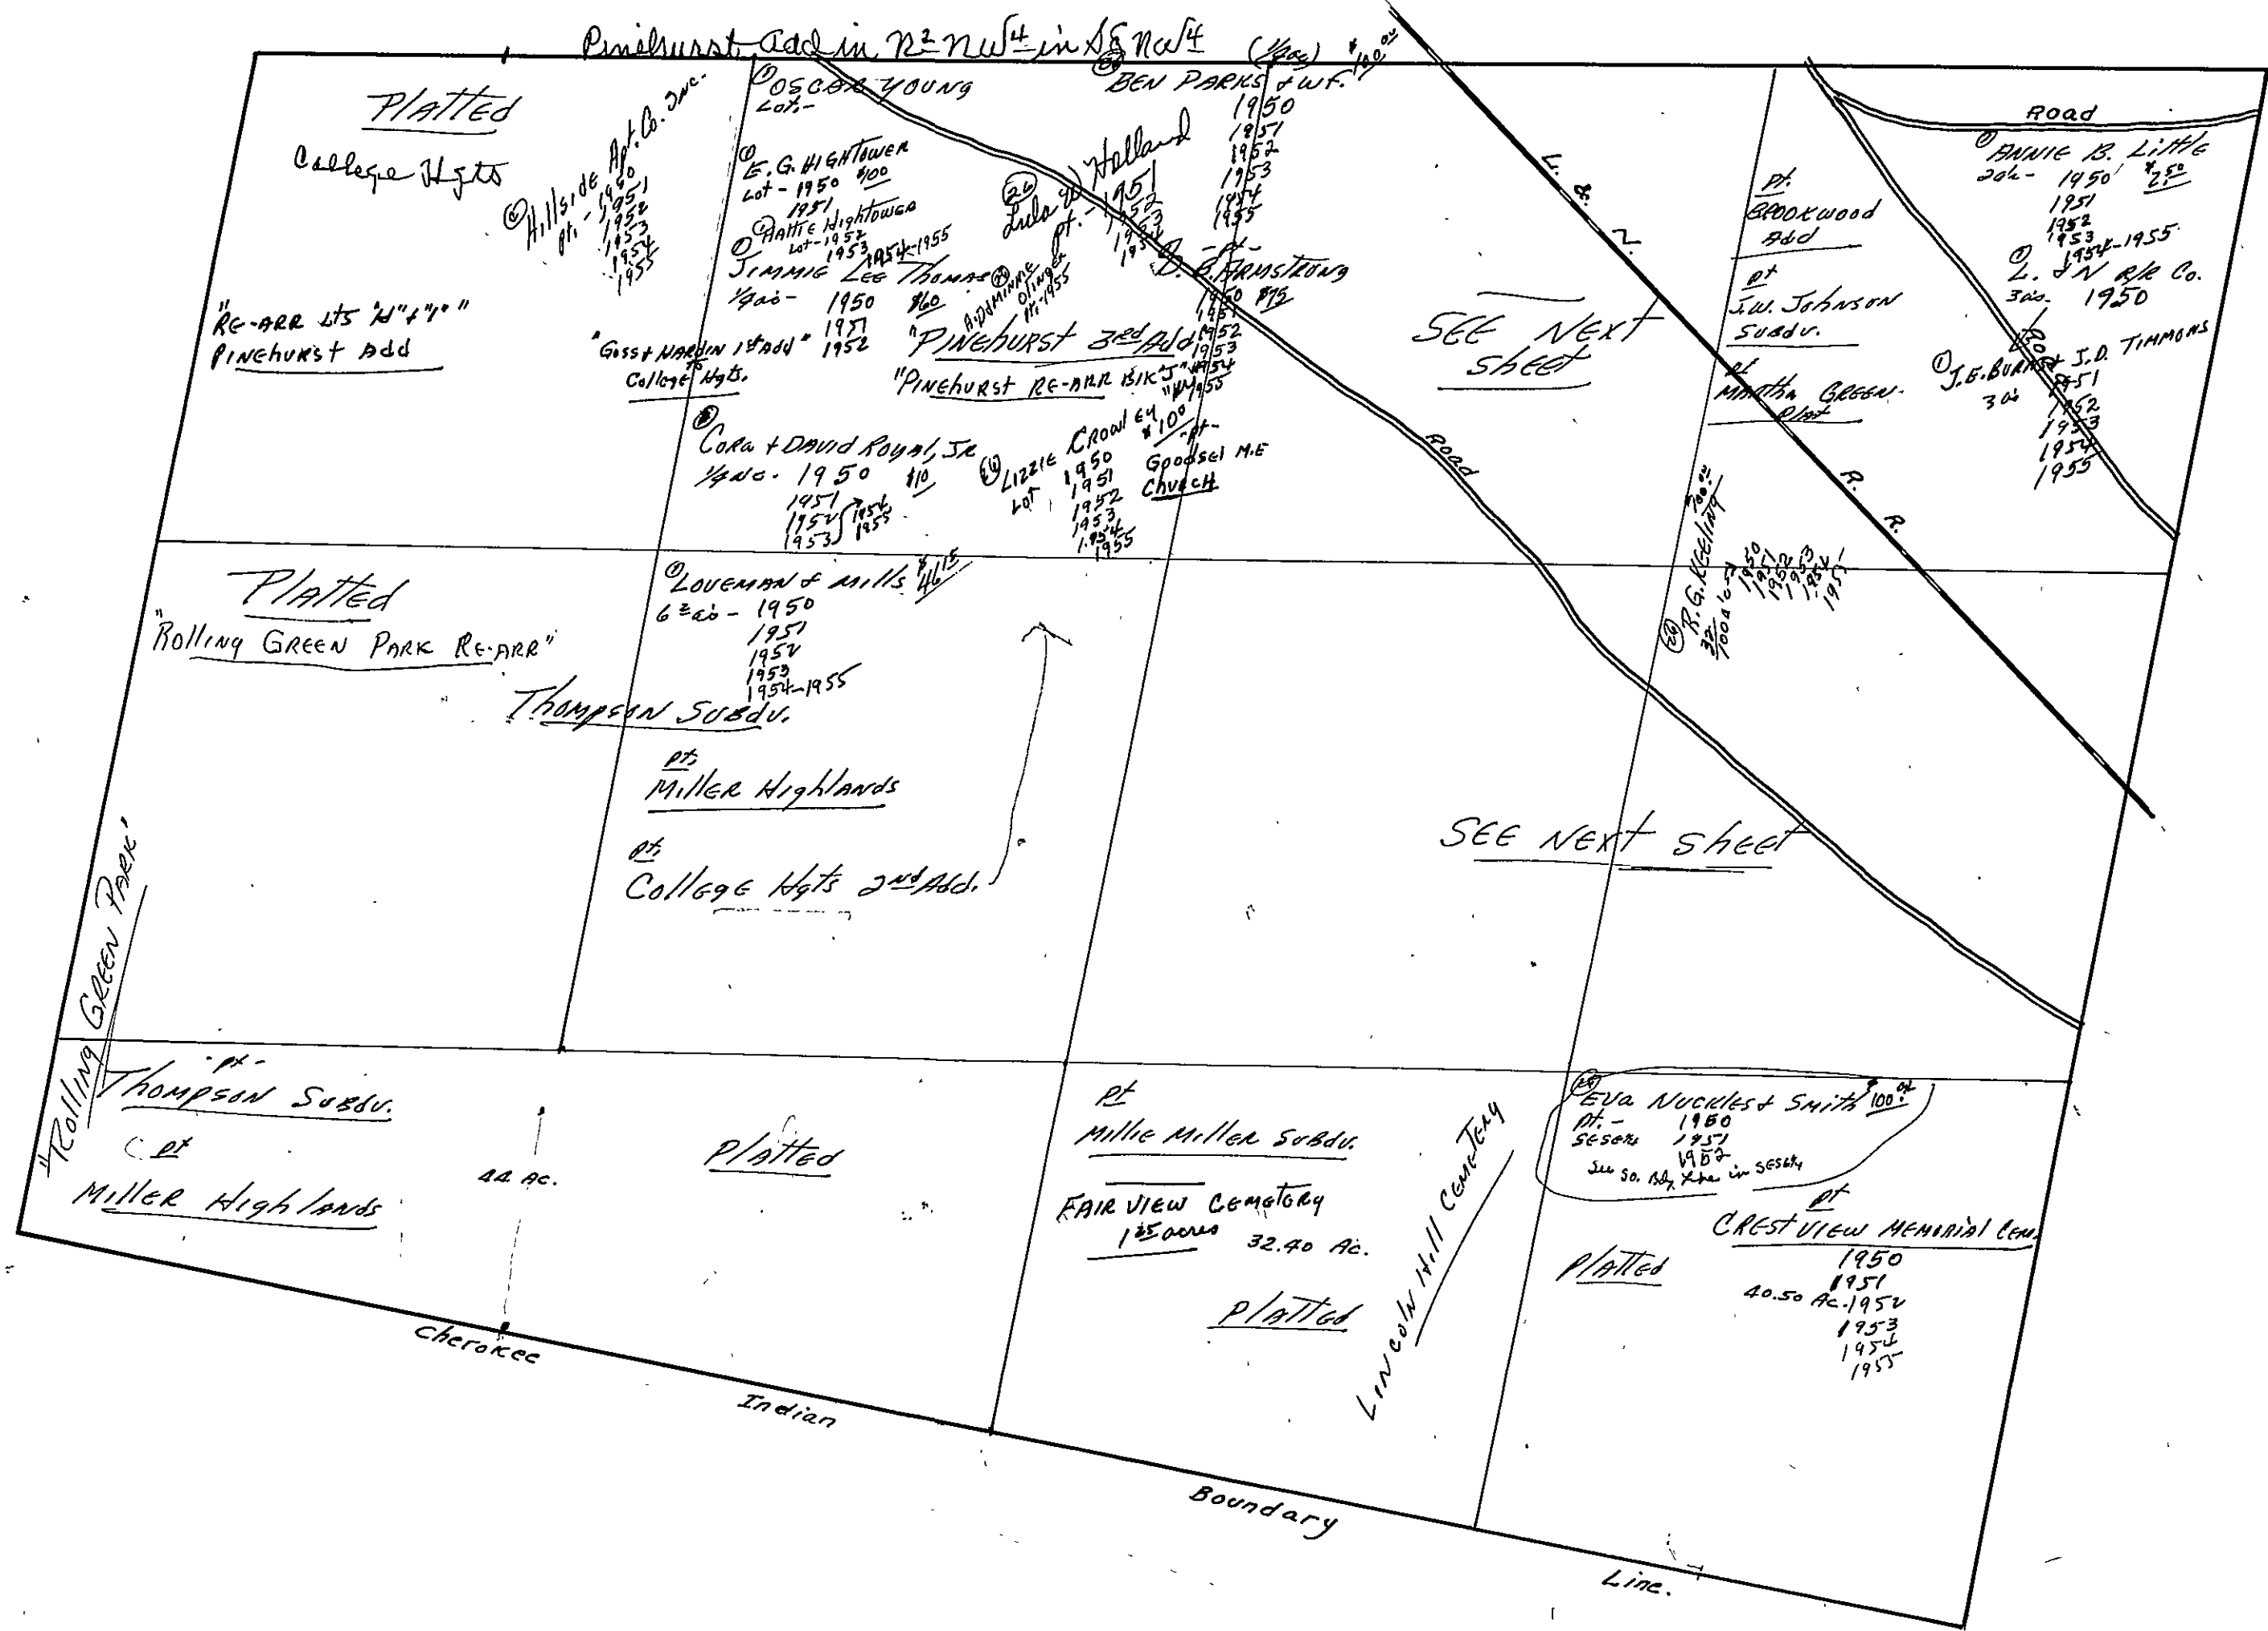 Pinehurst Add in N2 NW4 in SE NW4
(1/4 ac) $100.00
PLATTED
College Hgts
Hillside Apt. Co. Inc.
pt. - 1950
1951
1952
1953
1954
1955
"RE-ARR LTS "H" & "I"
PINEHURST Add
OSCAR YOUNG
Lot. -
E. G. HIGHTOWER
Lot - 1950 $100
1951
HATTIE HIGHTOWER
Lot - 1952
1953 1954-1955
JIMMIE LEE THOMAS
1/4 ac - 1950 $60
1951
1952
"GOSS & HARDIN 1st Add"
to
College Hgts.
(26)
Lula Holland
pt. - 1951
1952
1953
1954
MINNIE OLINGER
pt. - 1955
BEN PARKS & WF.
1950
1951
1952
1953
1954
1955
- pt -
D. B. ARMSTRONG
1950 $75
1951
1952
1953
1954
1955
"PINEHURST 3RD Add
"PINEHURST RE-ARR BlK "J"
CORA & DAVID ROYAL, JR
1/4 Ac. 1950 $10
1951
1952 1954
1953 1955
LIZZIE CROWLEY $100
Lot 1950
1951
1952
1953
1954
1955
- pt -
Goodsel M.E
CHURCH
SEE NEXT
SHEET
Road
L. & N. R. R.
pt.
BROOKWOOD
Add
pt
J.W. JOHNSON
SUBDV.
pt
MARTHA GREEN
Plat
Road
ANNIE B. LITTLE
2 ac - 1950 $2.50
1951
1952
1953
1954-1955
L. & N R/R Co.
3 ac. 1950
Road
J.E. BURKS & J.D. TIMMONS
3 ac 1951
1952
1953
1954
1955
R.G. KEELING $100.00
32/100 Ac
1950
1951
1952
1953
1954
1955
PLATTED
"ROLLING GREEN PARK RE-ARR"
LOVEMAN & MILLS $46.15
6 2 ac - 1950
1951
1952
1953
1954-1955
THOMPSON SUBDV.
pt.
MILLER HIGHLANDS
pt.
COLLEGE Hgts 2nd Add.
SEE NEXT SHEET
"ROLLING GREEN PARK"
- pt -
THOMPSON SUBDV.
pt
MILLER HIGHLANDS
44 AC.
PLATTED
pt
MILLIE MILLER SUBDV.
FAIR VIEW CEMETERY
1 25 acres
32.40 Ac.
PLATTED
LINCOLN HILL CEMETERY
EVA NUCKLES & SMITH $100.00
pt. - 1950
SESE 1/4 1951
1952
See So. Bdy. Line in SESE 1/4
pt
CREST VIEW MEMORIAL CEM.
PLATTED
1950
1951
40.50 Ac. 1952
1953
1954
1955
Cherokee
Indian
Boundary
Line.